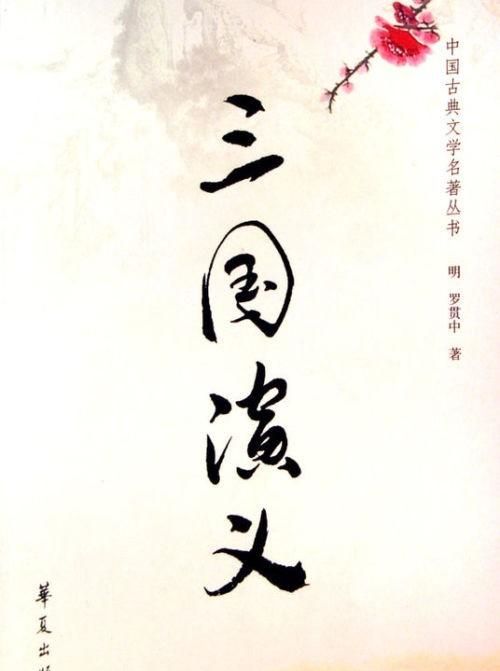 中国古典文学名著丛书
明 罗贯中 著
三国演义
华夏出